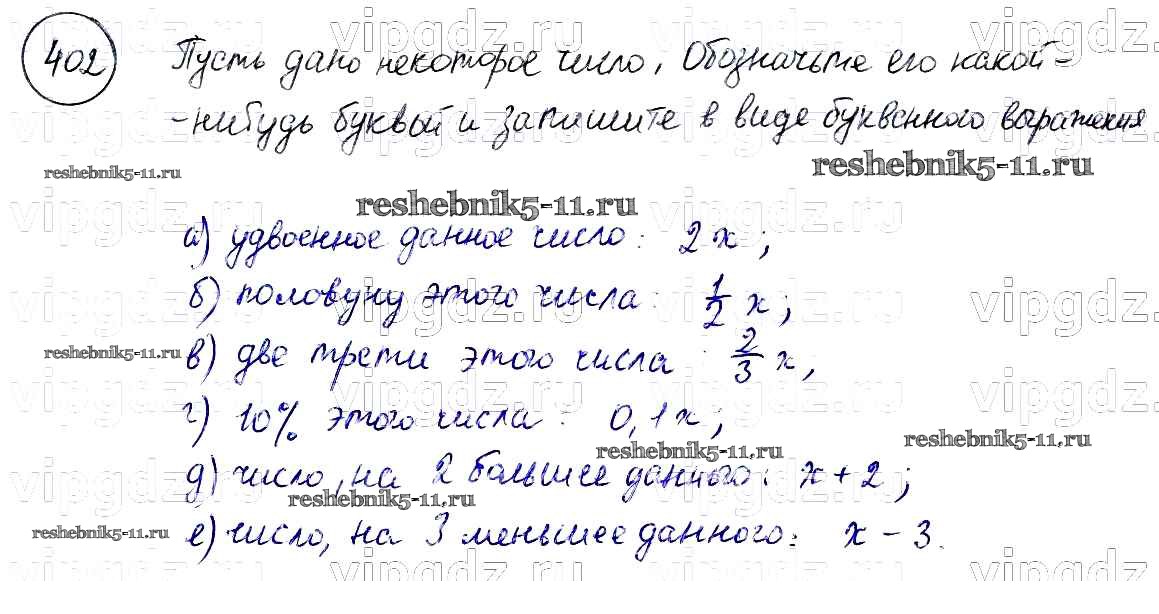 402 Пусть дано некоторое число, Обозначьте его какой-
-нибудь буквой и запишите в виде буквенного выражения
reshebnik5-11.ru
reshebnik5-11.ru
reshebnik5-11.ru
vipgdz.ru vipgdz.ru vipgdz.ru vipgdz.ru
а) удвоенное данное число: 2x;
б) половину этого числа: 1/2 x;
reshebnik5-11.ru
в) две трети этого числа: 2/3 x,
г) 10% этого числа: 0,1x;
reshebnik5-11.ru
reshebnik5-11.ru
д) число, на 2 большее данного: x + 2;
reshebnik5-11.ru
reshebnik5-11.ru
е) число, на 3 меньшее данного: x - 3.